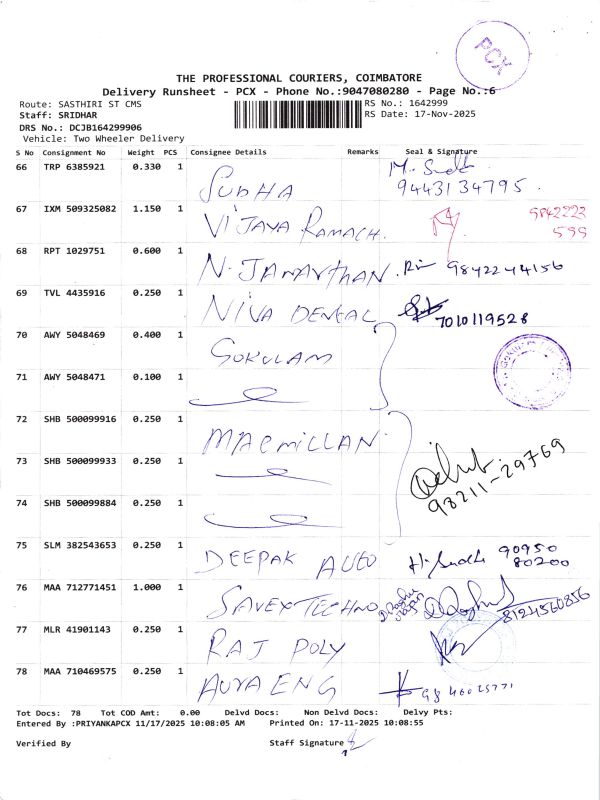 PCX
THE PROFESSIONAL COURIERS, COIMBATORE
Delivery Runsheet - PCX - Phone No.:9047080280 - Page No.:6
Route: SASTHIRI ST CMS
RS No.: 1642999
Staff: SRIDHAR
RS Date: 17-Nov-2025
DRS No.: DCJB164299906
Vehicle: Two Wheeler Delivery
S No Consignment No Weight PCS Consignee Details Remarks Seal & Signature
66 TRP 6385921 0.330 1 SUDHA 9443134795
67 IXM 509325082 1.150 1 VIJAYA RAMACH. 9842223 599
68 RPT 1029751 0.600 1 N. JANARTHAN. 9842244156
69 TVL 4435916 0.250 1 NIVA DENTAL 7010119528
70 AWY 5048469 0.400 1 GOKULAM
71 AWY 5048471 0.100 1
72 SHB 500099916 0.250 1 MACMILLAN
73 SHB 500099933 0.250 1
98211-29769
74 SHB 500099884 0.250 1
75 SLM 382543653 0.250 1 DEEPAK AUTO 90950 80200
76 MAA 712771451 1.000 1 SAVEX TECHNO 8124560856
77 MLR 41901143 0.250 1 RAJ POLY
78 MAA 710469575 0.250 1 ENG
Tot Docs: 78 Tot COD Amt: 0.00 Delvd Docs: Non Delvd Docs: Delvy Pts:
Entered By :PRIYANKAPCX 11/17/2025 10:08:05 AM Printed On: 17-11-2025 10:08:55
Verified By Staff Signature